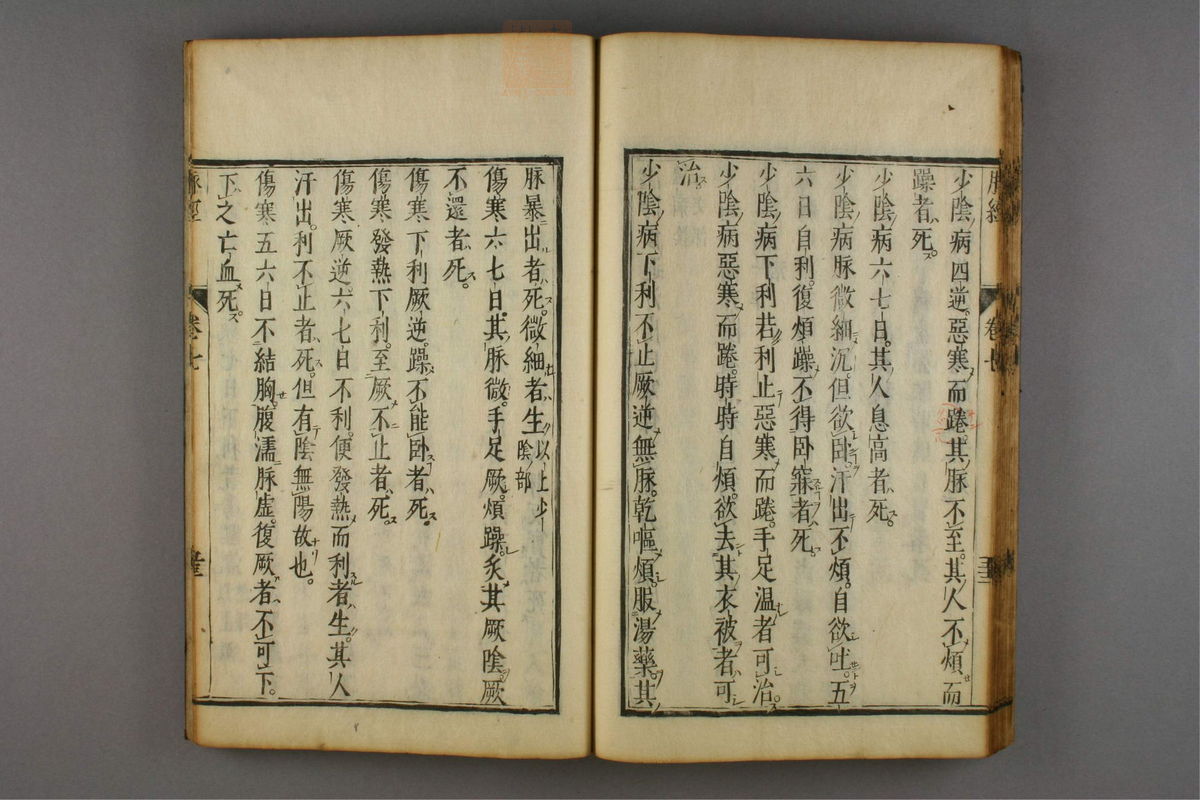 少陰病四逆惡寒而踡其脉不至其人不煩而
躁者死
少陰病六七日其人息高者死
少陰病脉微細沉但欲卧汗出不煩自欲吐五
六日自利復煩躁不得卧寐者死
少陰病下利若利止惡寒而踡手足温者可治
少陰病惡寒而踡時時自煩欲去其衣被者可
治
少陰病下利不止厥逆無脉乾嘔煩服湯藥其
脉暴出者死微細者生以上少
陰部
傷寒六七日其脉微手足厥煩躁灸其厥陰厥
不還者死
傷寒下利厥逆躁不能卧者死
傷寒發熱下利至厥不止者死
傷寒厥逆六七日不利便發熱而利者生其人
汗出利不止者死但有陰無陽故也
傷寒五六日不結胸腹濡脉虛復厥者不可下
下之亡血死
脉經
卷七